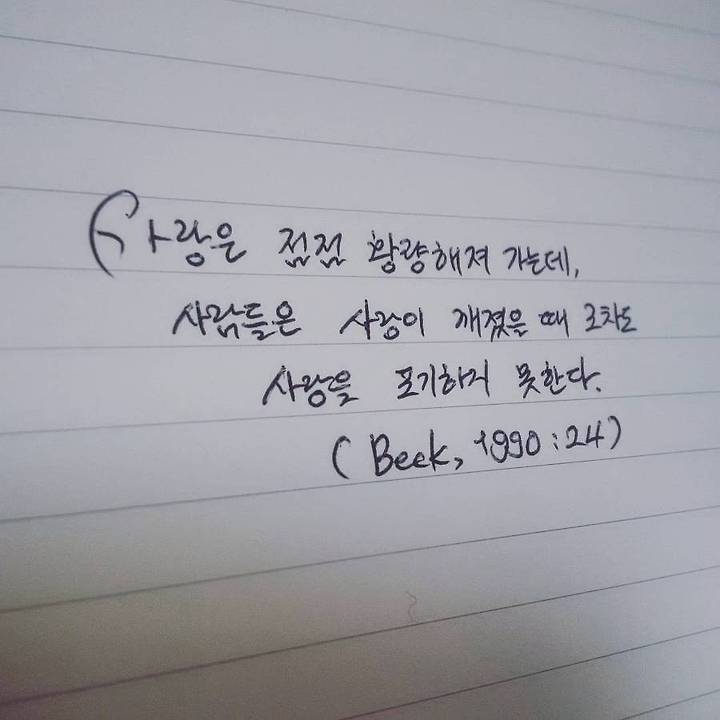 사랑은 점점 황량해져 가는데,
사람들은 사랑이 깨졌을 때 조차도
사랑을 포기하지 못한다.
(Beck, 1990:24)